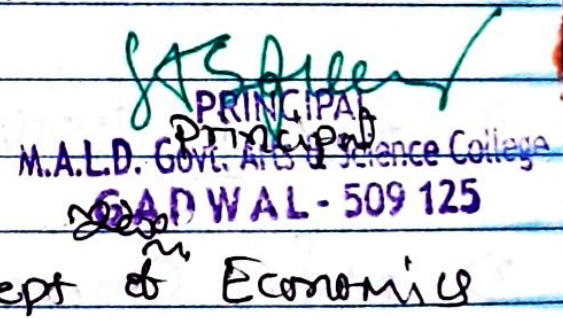 PRINCIPAL
Principal
M.A.L.D. Govt. Arts & Science College
GADWAL - 509 125
ept of Economics